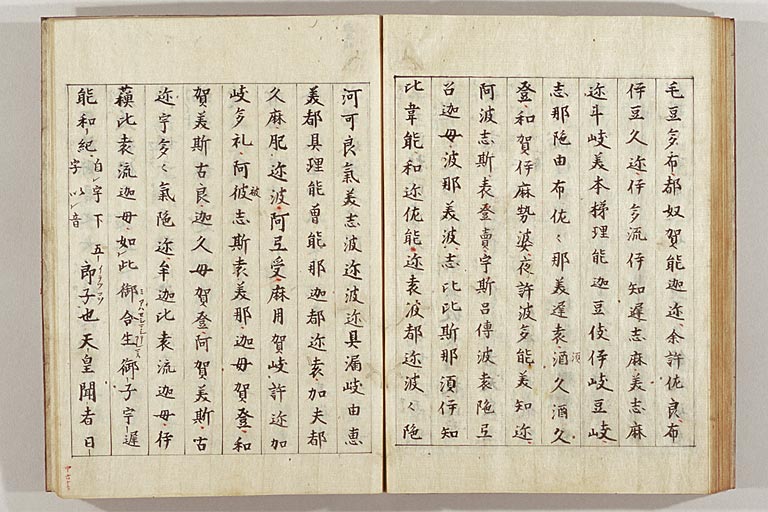 毛豆多布都奴賀能迦迩余許佐良布
伊豆久迩伊多流伊知遲志麻美志麻
迩斗岐美本梯理能迦豆伎伊岐豆岐
志那陁由布佐〻那美遲袁酒久酒久
登和賀伊麻勢婆夜許波多能美知迩
阿波志斯袁登賣宇斯呂傳波袁陁弖
呂迦母波那美波志比比斯那須伊知
比韋能和迩佐能迩袁波都迩波〻陁
河可良氣美志波迩波迩具漏岐由恵
美都具理能曽能那迦都迩袁加夫都
久麻肥迩波阿弖受麻用賀岐許迩加
岐多礼阿彼志斯袁美那迦母賀登和
賀美斯古良迦久母賀登阿賀美斯古
迩宇多〻氣陁迩牟迦比袁流迦母伊
蘓比袁流迦母如此御合生御子宇遲
能和紀自宇下五字以音郎子也天皇聞者日